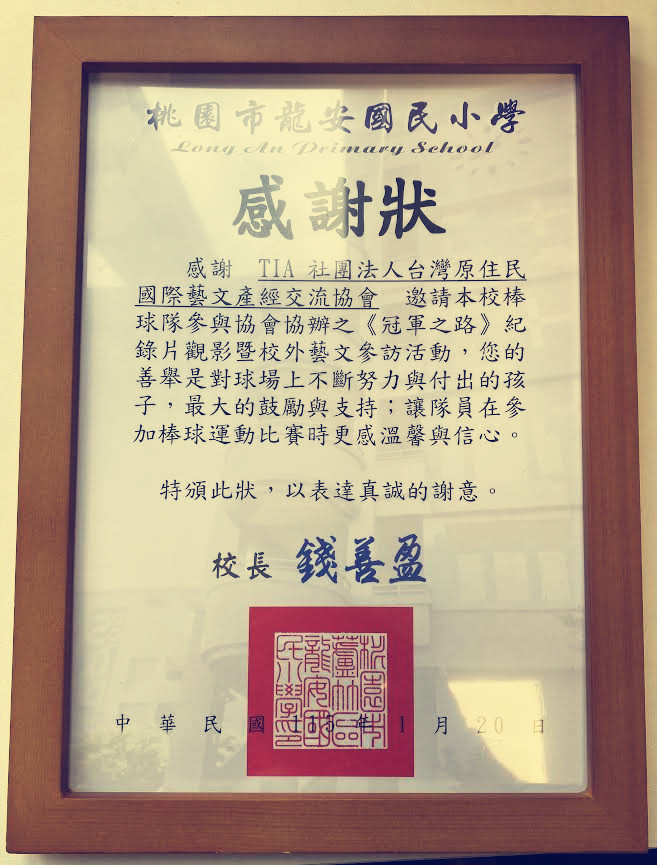 桃園市龍安國民小學
Long An Primary School
感謝狀
感謝　TIA 社團法人台灣原住民
國際藝文產經交流協會　邀請本校棒
球隊參與協會協辦之《冠軍之路》紀
錄片觀影暨校外藝文參訪活動，您的
善舉是對球場上不斷努力與付出的孩
子，最大的鼓勵與支持；讓隊員在參
加棒球運動比賽時更感溫馨與信心。
特頒此狀，以表達真誠的謝意。
校長 錢善盈
桃園市
蘆竹區
龍安國
民小學印
中華民國 115 年 1 月 20 日